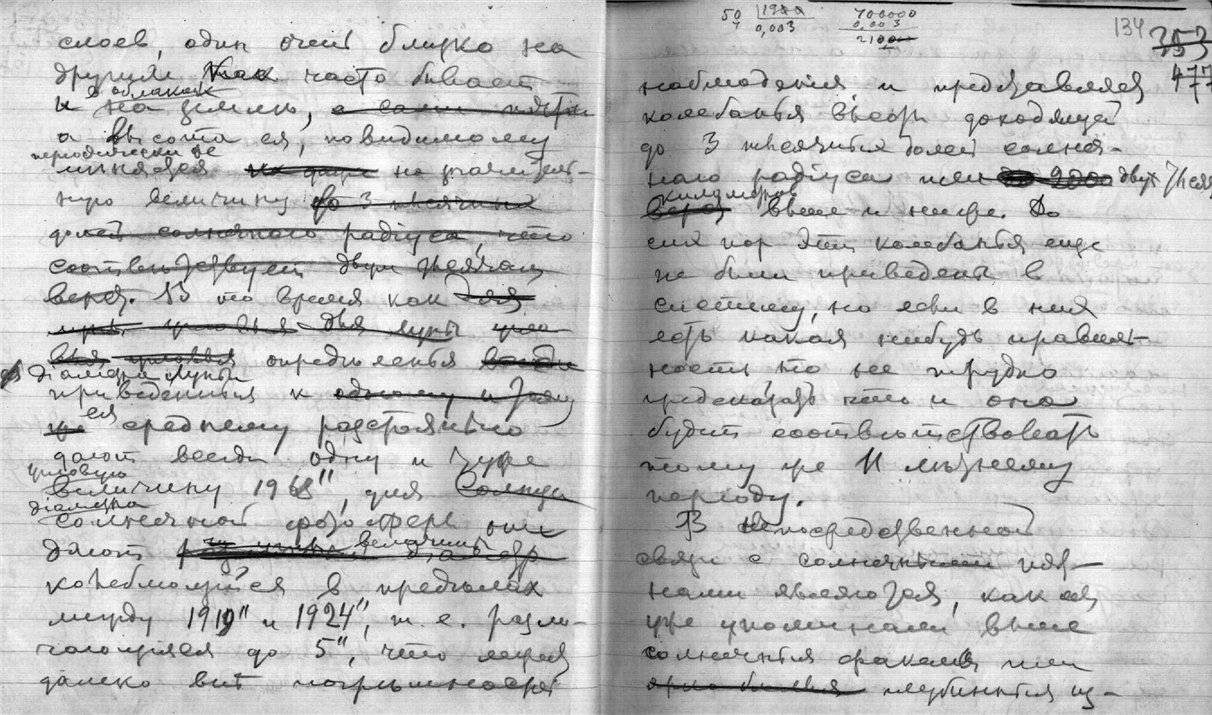 слоев, один очень близко на
другим как часто бывает
в облаках
и на землѣ,
а высота ея, повидимому
периодически не
меняется на значитель-
ную величину до 3 тысячных
долей солнечного радіуса, что
соответствует двум тысячам
верст. В то время как для
определенья
діаметра Луны
приведенныя к одному и тому
ея
же среднему разстоянью
дают всегда одну и туже
угловую
величину 1968", для Солнца
діаметра
солнечной фотосферы они
дают величины
колеблющіеся в предѣлах
между 1919" и 1924", т. е. разли-
чающіяся до 5", что лежит
далеко вне погрешностей
50 0,003
700000
0,003
2100
134 353
477
наблюдения и представляет
колебанья высоты доходящей
до 3 тысячных долей солнеч-
наго радіуса или 2000 двух тысяч
километров
верст выше и ниже. До
сих пор эти колебанья еще
не были приведены в
систему, но если в них
есть какая нибудь правиль-
ность то не трудно
предсказать что и она
будет соответствовать
тому же 11 лѣтнему
періоду.
В непосредственной
связи с солнечными пят-
нами являются, как мы
уже упоминали выше
солнечныя факелы или
глубинныя из-